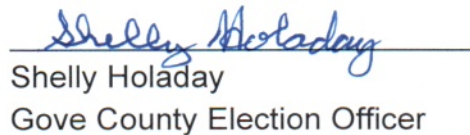 Shelly Holaday
Shelly Holaday
Gove County Election Officer